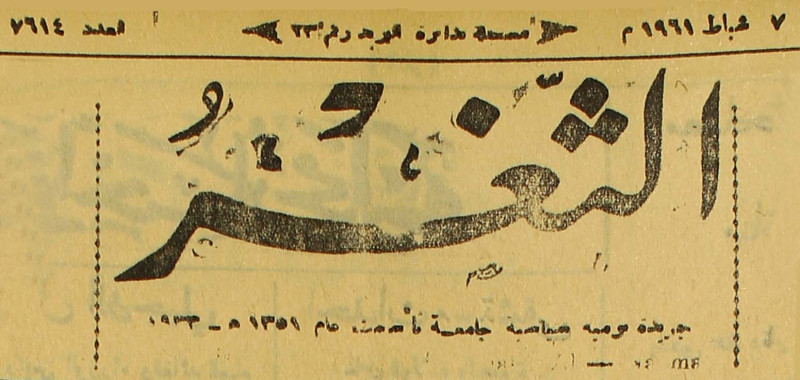 ٧ شباط ١٩٦١ م مسجلة بدائرة البريد رقم ٢٣ العدد ٧٦١٤
الثَّغْرُ
جريدة يومية سياسية جامعة تأسست عام ١٣٥١ هـ - ١٩٣٣